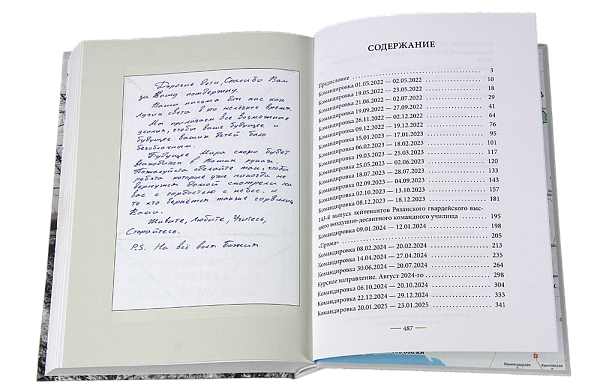 Дорогие дети, Спасибо Вам
за Вашу поддержку.
Ваши письма для нас как
лучик света в это нелёгкое время.
Мы приложем все возможные
усилия, чтобы ваше будущее и
будущее ваших детей было
безоблачным.
Будущее Мира скоро будет
находится в Ваших руках.
Пожалуйста сделайте так, чтобы
ребята которые уже никогда не
вернутся домой смотрели на
вас с гордостью с небес, и
те кто вернётся также гордились
Вами.
Живите, Любите, Учитесь,
Старайтесь.
P.S. На всё воля Божия
СОДЕРЖАНИЕ
Предисловие 3
Командировка 01.05.2022 — 02.05.2022 10
Командировка 19.05.2022 — 23.05.2022 18
Командировка 21.06.2022 — 02.07.2022 29
Командировка 19.09.2022 — 27.09.2022 41
Командировка 26.11.2022 — 02.12.2022 64
Командировка 09.12.2022 — 19.12.2022 76
Командировка 15.01.2023 — 17.01.2023 95
Командировка 06.02.2023 — 18.02.2023 101
Командировка 19.03.2023 — 25.03.2023 117
Командировка 25.05.2023 — 02.06.2023 120
Командировка 18.07.2023 — 28.07.2023 133
Командировка 02.09.2023 — 04.09.2023 143
Командировка 02.10.2023 — 13.10.2023 157
Командировка 08.12.2023 — 18.12.2023 181
143-й выпуск лейтенантов Рязанского гвардейского выс-
шего воздушно-десантного командного училища 195
Командировка 09.01.2024 — 12.01.2024 198
«Прима» 205
Командировка 08.02.2024 — 20.02.2024 213
Командировка 14.04.2024 — 27.04.2024 238
Командировка 30.06.2024 — 20.07.2024 264
Курское направление. Август 2024-го 298
Командировка 06.10.2024 — 20.10.2024 304
Командировка 22.12.2024 — 29.12.2024 333
Командировка 20.01.2025 — 23.01.2025 341
487
Ленинградская
Крыловская